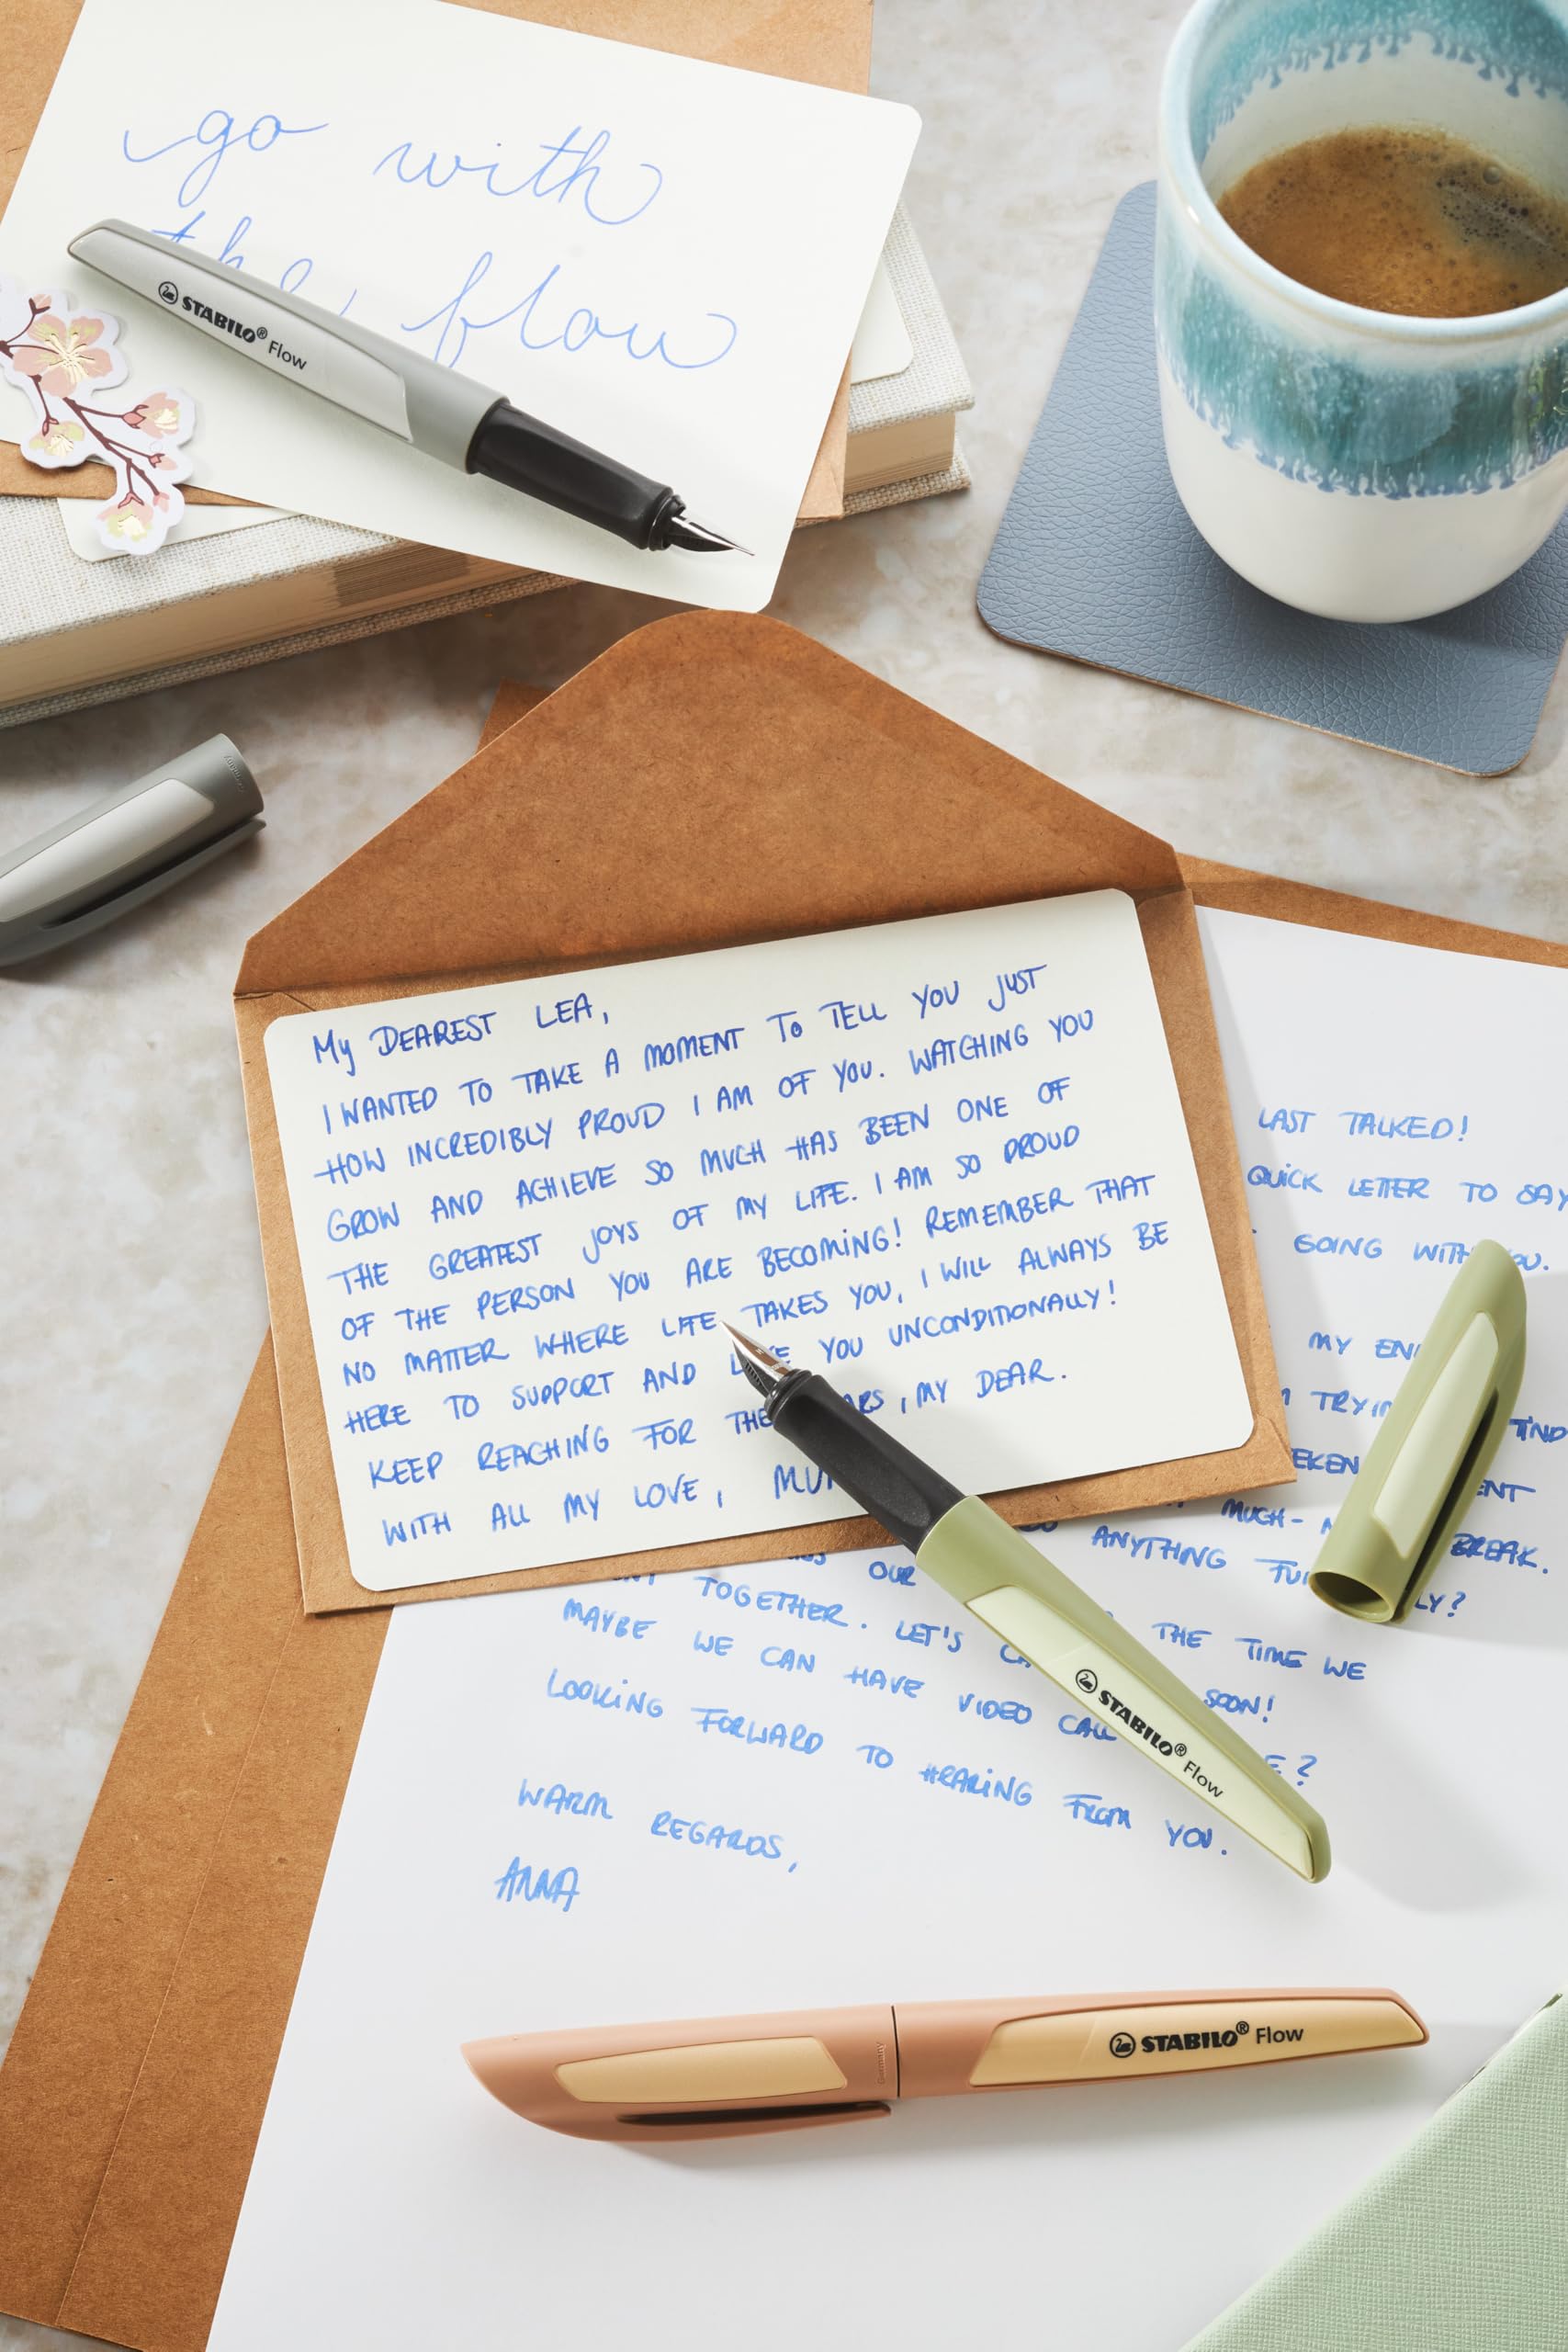 go with
the flow
STABILO® Flow
My DEAREST LEA,
I WANTED TO TAKE A MOMENT TO TELL YOU JUST
HOW INCREDIBLY PROUD I AM OF YOU. WATCHING YOU
GROW AND ACHIEVE SO MUCH HAS BEEN ONE OF
THE GREATEST JOYS OF MY LIFE. I AM SO PROUD
OF THE PERSON YOU ARE BECOMING! REMEMBER THAT
NO MATTER WHERE LIFE TAKES YOU, I WILL ALWAYS BE
HERE TO SUPPORT AND YOU UNCONDITIONALLY!
KEEP REACHING FOR THE , MY DEAR.
WITH ALL MY LOVE,
LAST TALKED!
QUICK LETTER TO SAY
GOING WITH
MY
MUCH-
BREAK.
ANYTHING
OUR
TOGETHER. LET'S THE TIME WE
MAYBE WE CAN HAVE VIDEO CALL SOON!
LOOKING FORWARD TO HEARING FROM YOU.
WARM REGARDS,
ANNA
STABILO® Flow
Germany
STABILO® Flow